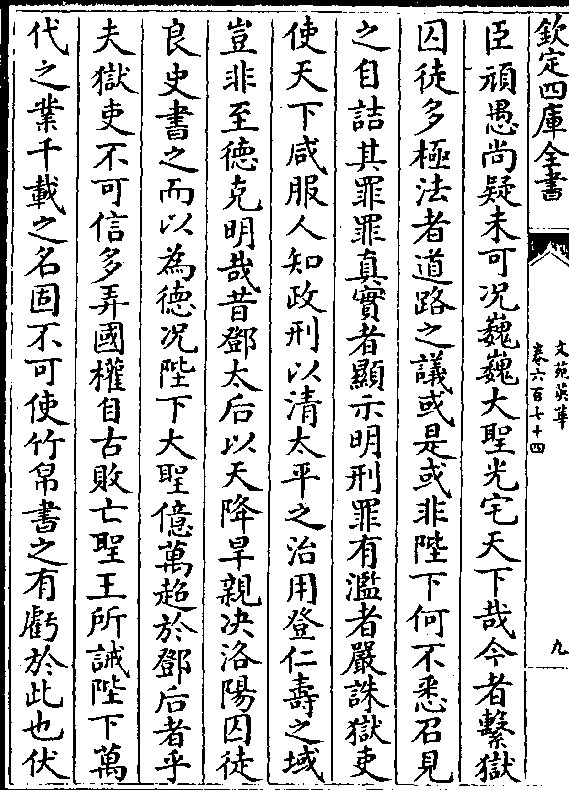 欽定四庫全書
文苑英華
卷六百七十四
九
臣頑愚尚疑未可况巍巍大聖光宅天下哉今者繫獄
囚徒多極法者道路之議或是或非陛下何不悉召見
之自詰其罪罪真實者顯示明刑罪有濫者嚴誅獄吏
使天下咸服人知政刑以清太平之治用登仁壽之域
豈非至德克明哉昔鄧太后以天降旱親决洛陽囚徒
良史書之而以為德况陛下大聖億萬超於鄧后者乎
夫獄吏不可信多弄國權自古敗亡聖王所誡陛下萬
代之業千載之名固不可使竹帛書之有虧於此也伏